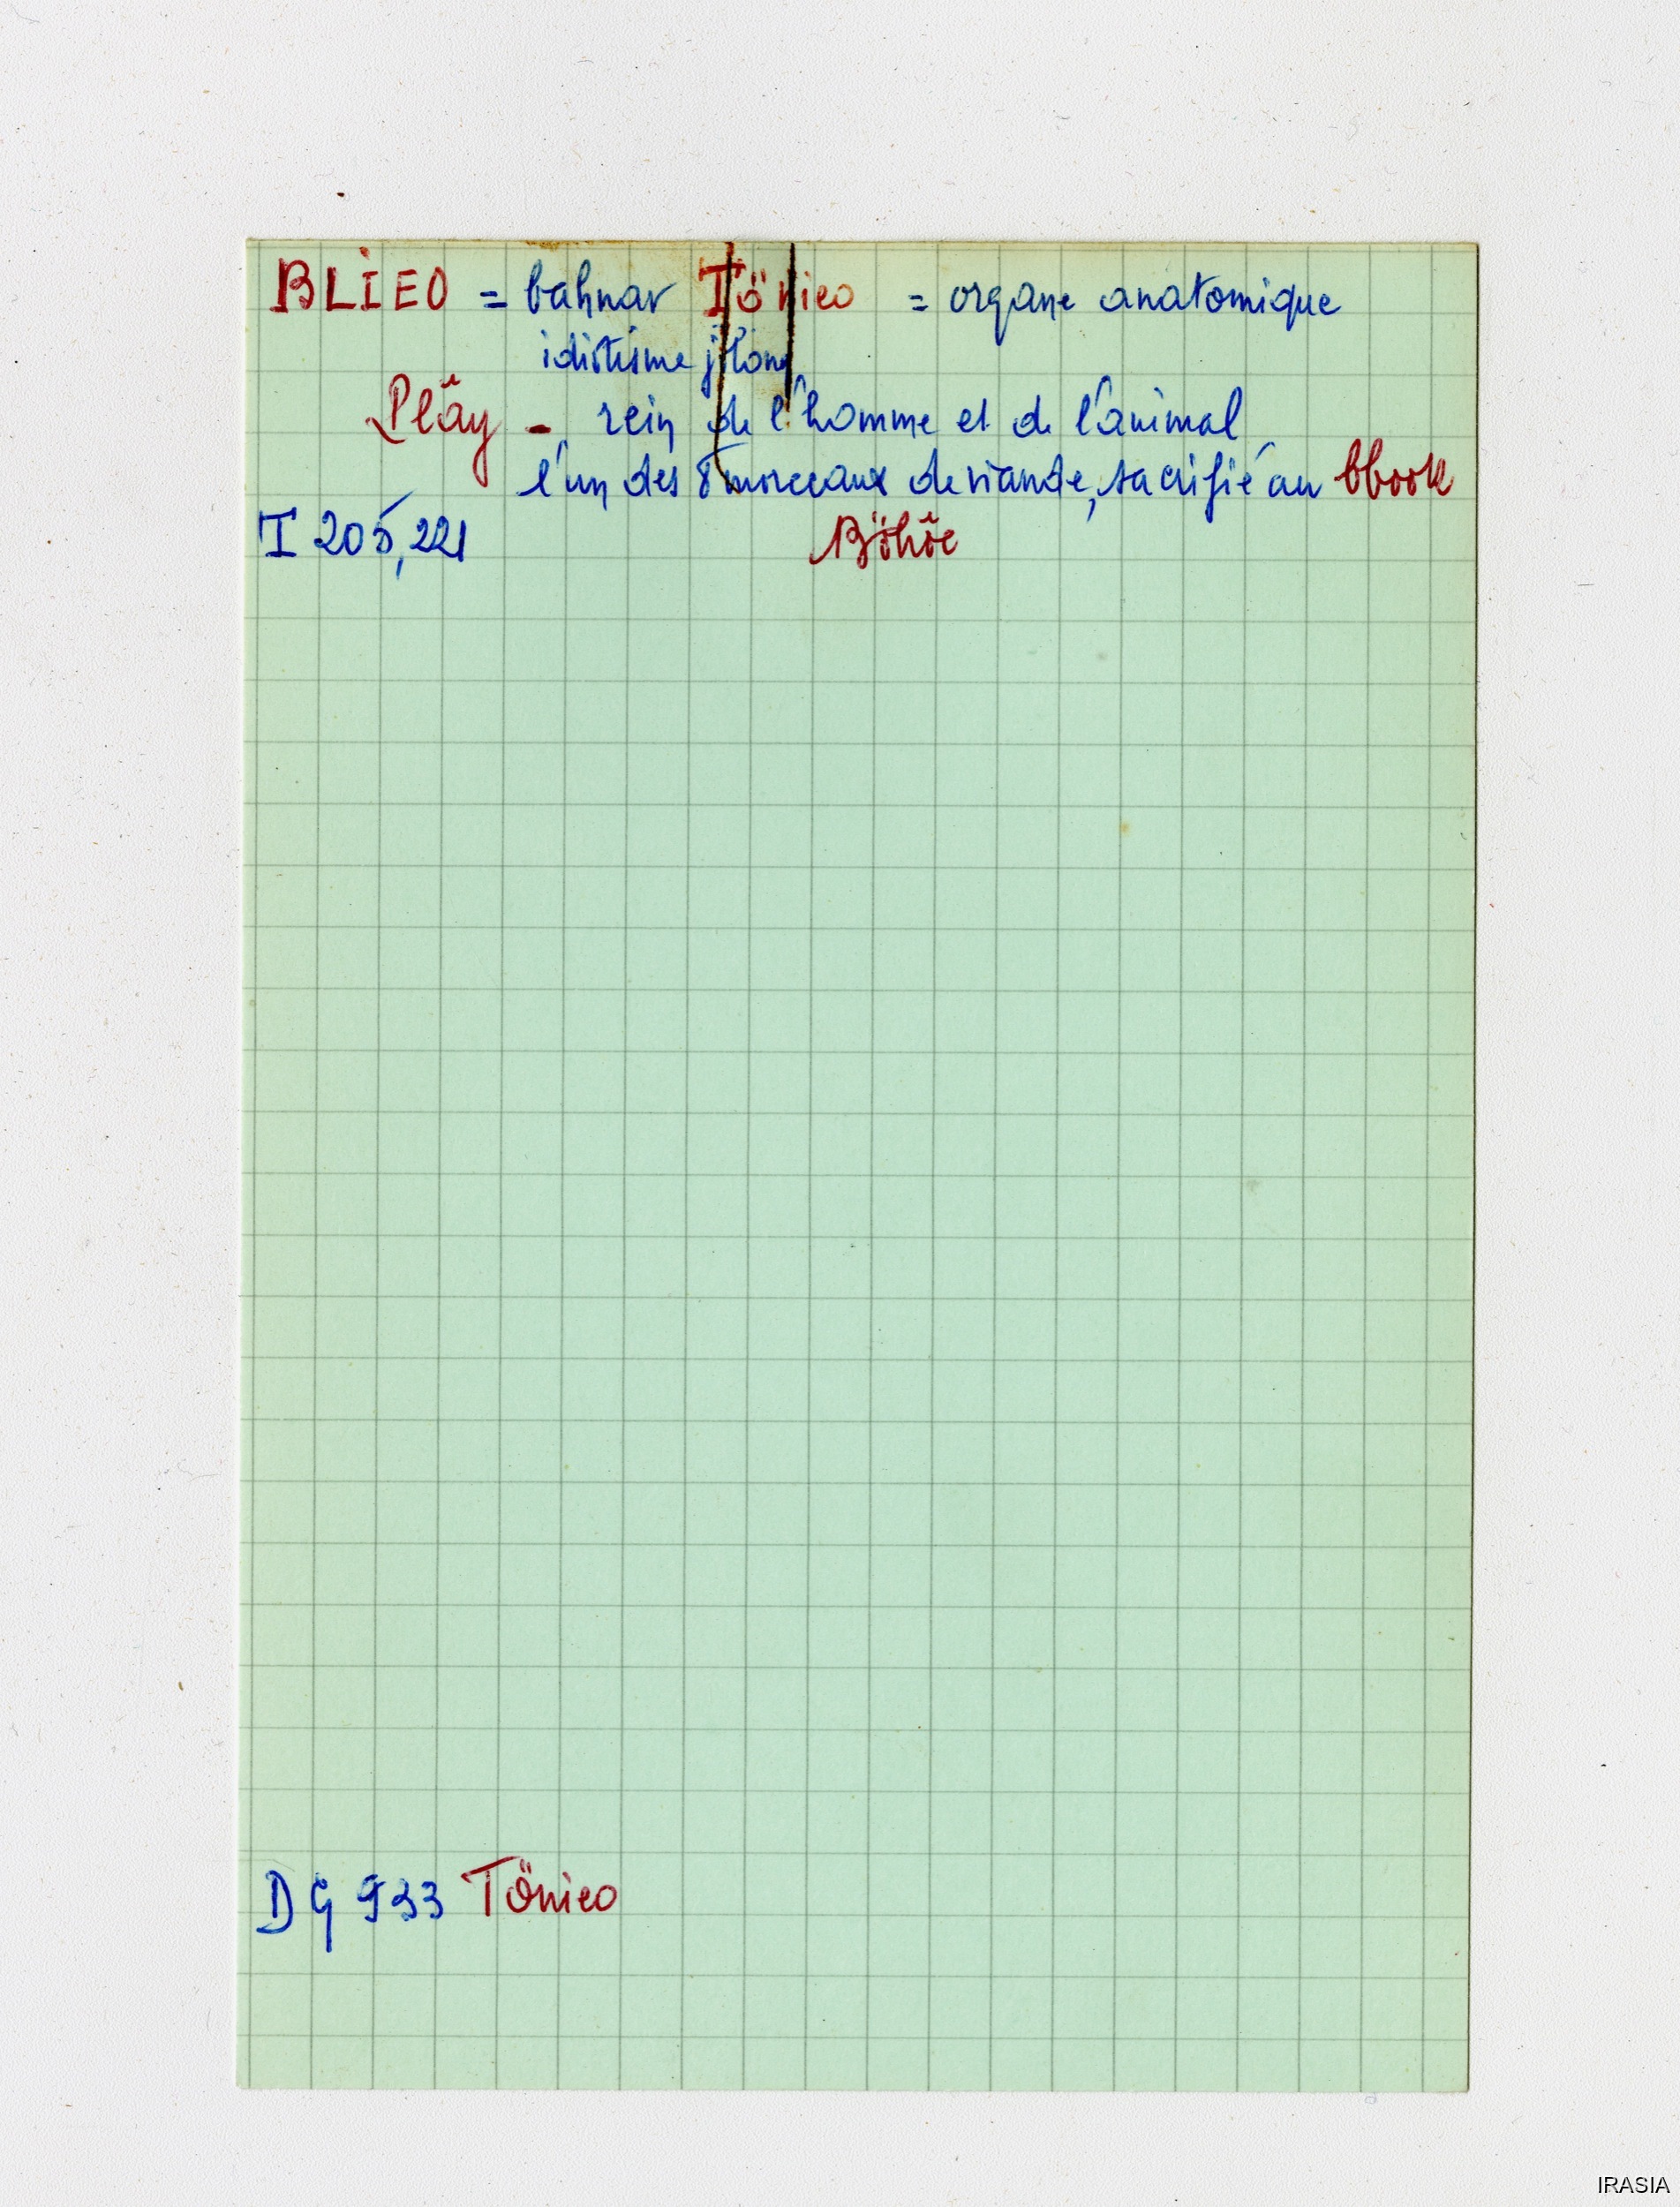 BLIEO = bahnar Tönieo = organe anatomique
idiotisme jölöng
Plây - rein de l'homme et de l'animal
l'un des 8 morceaux de viande, sacrifié au bbook
I 205, 221 Böhôc
DG 933 Tönieo
IRASIA